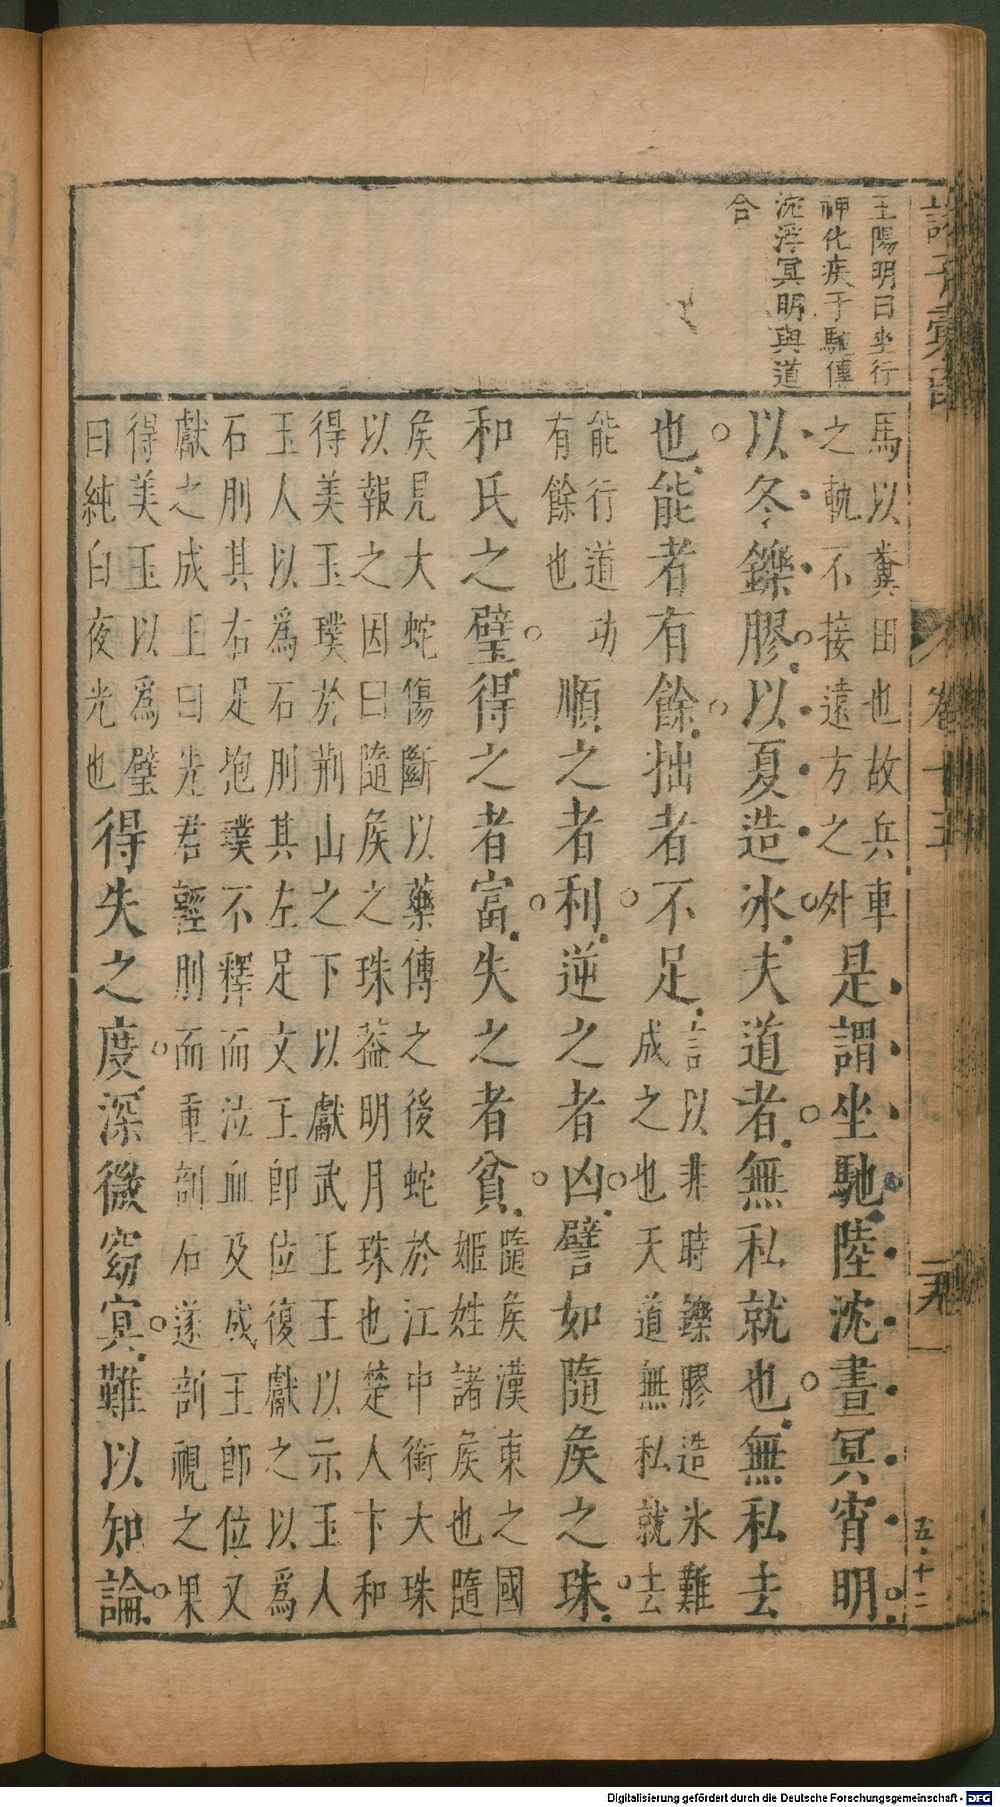 王陽明曰坐行
神化疾于馳傳
沈浮冥明與道
合
馬以糞田也故兵車
之軌不接遠方之外
是謂坐馳陸沈晝冥宵明
以冬鑠膠以夏造冰夫道者無私就也無私去
也能者有餘拙者不足
言以非時鑠膠造氷難
成之也天道無私就去
能行道功
有餘也
順之者利逆之者凶譬如隨矦之珠
和氏之璧得之者富失之者貧
隨矦漢東之國
姬姓諸矦也隨
矦見大蛇傷斷以藥傅之後蛇於江中銜大珠
以報之因曰隨矦之珠葢明月珠也楚人卞和
得美玉璞於荆山之下以獻武王王以示玉人
玉人以爲石刖其左足文王卽位復獻之以爲
石刖其右足抱璞不釋而泣血及成王卽位又
獻之成王曰先君輕刖而重剖石遂剖視之果
得美玉以爲璧
曰純白夜光也
得失之度深微窈冥難以知論
諸子彙函
卷十五
五十二
Digitalisierung gefördert durch die Deutsche Forschungsgemeinschaft - DFG